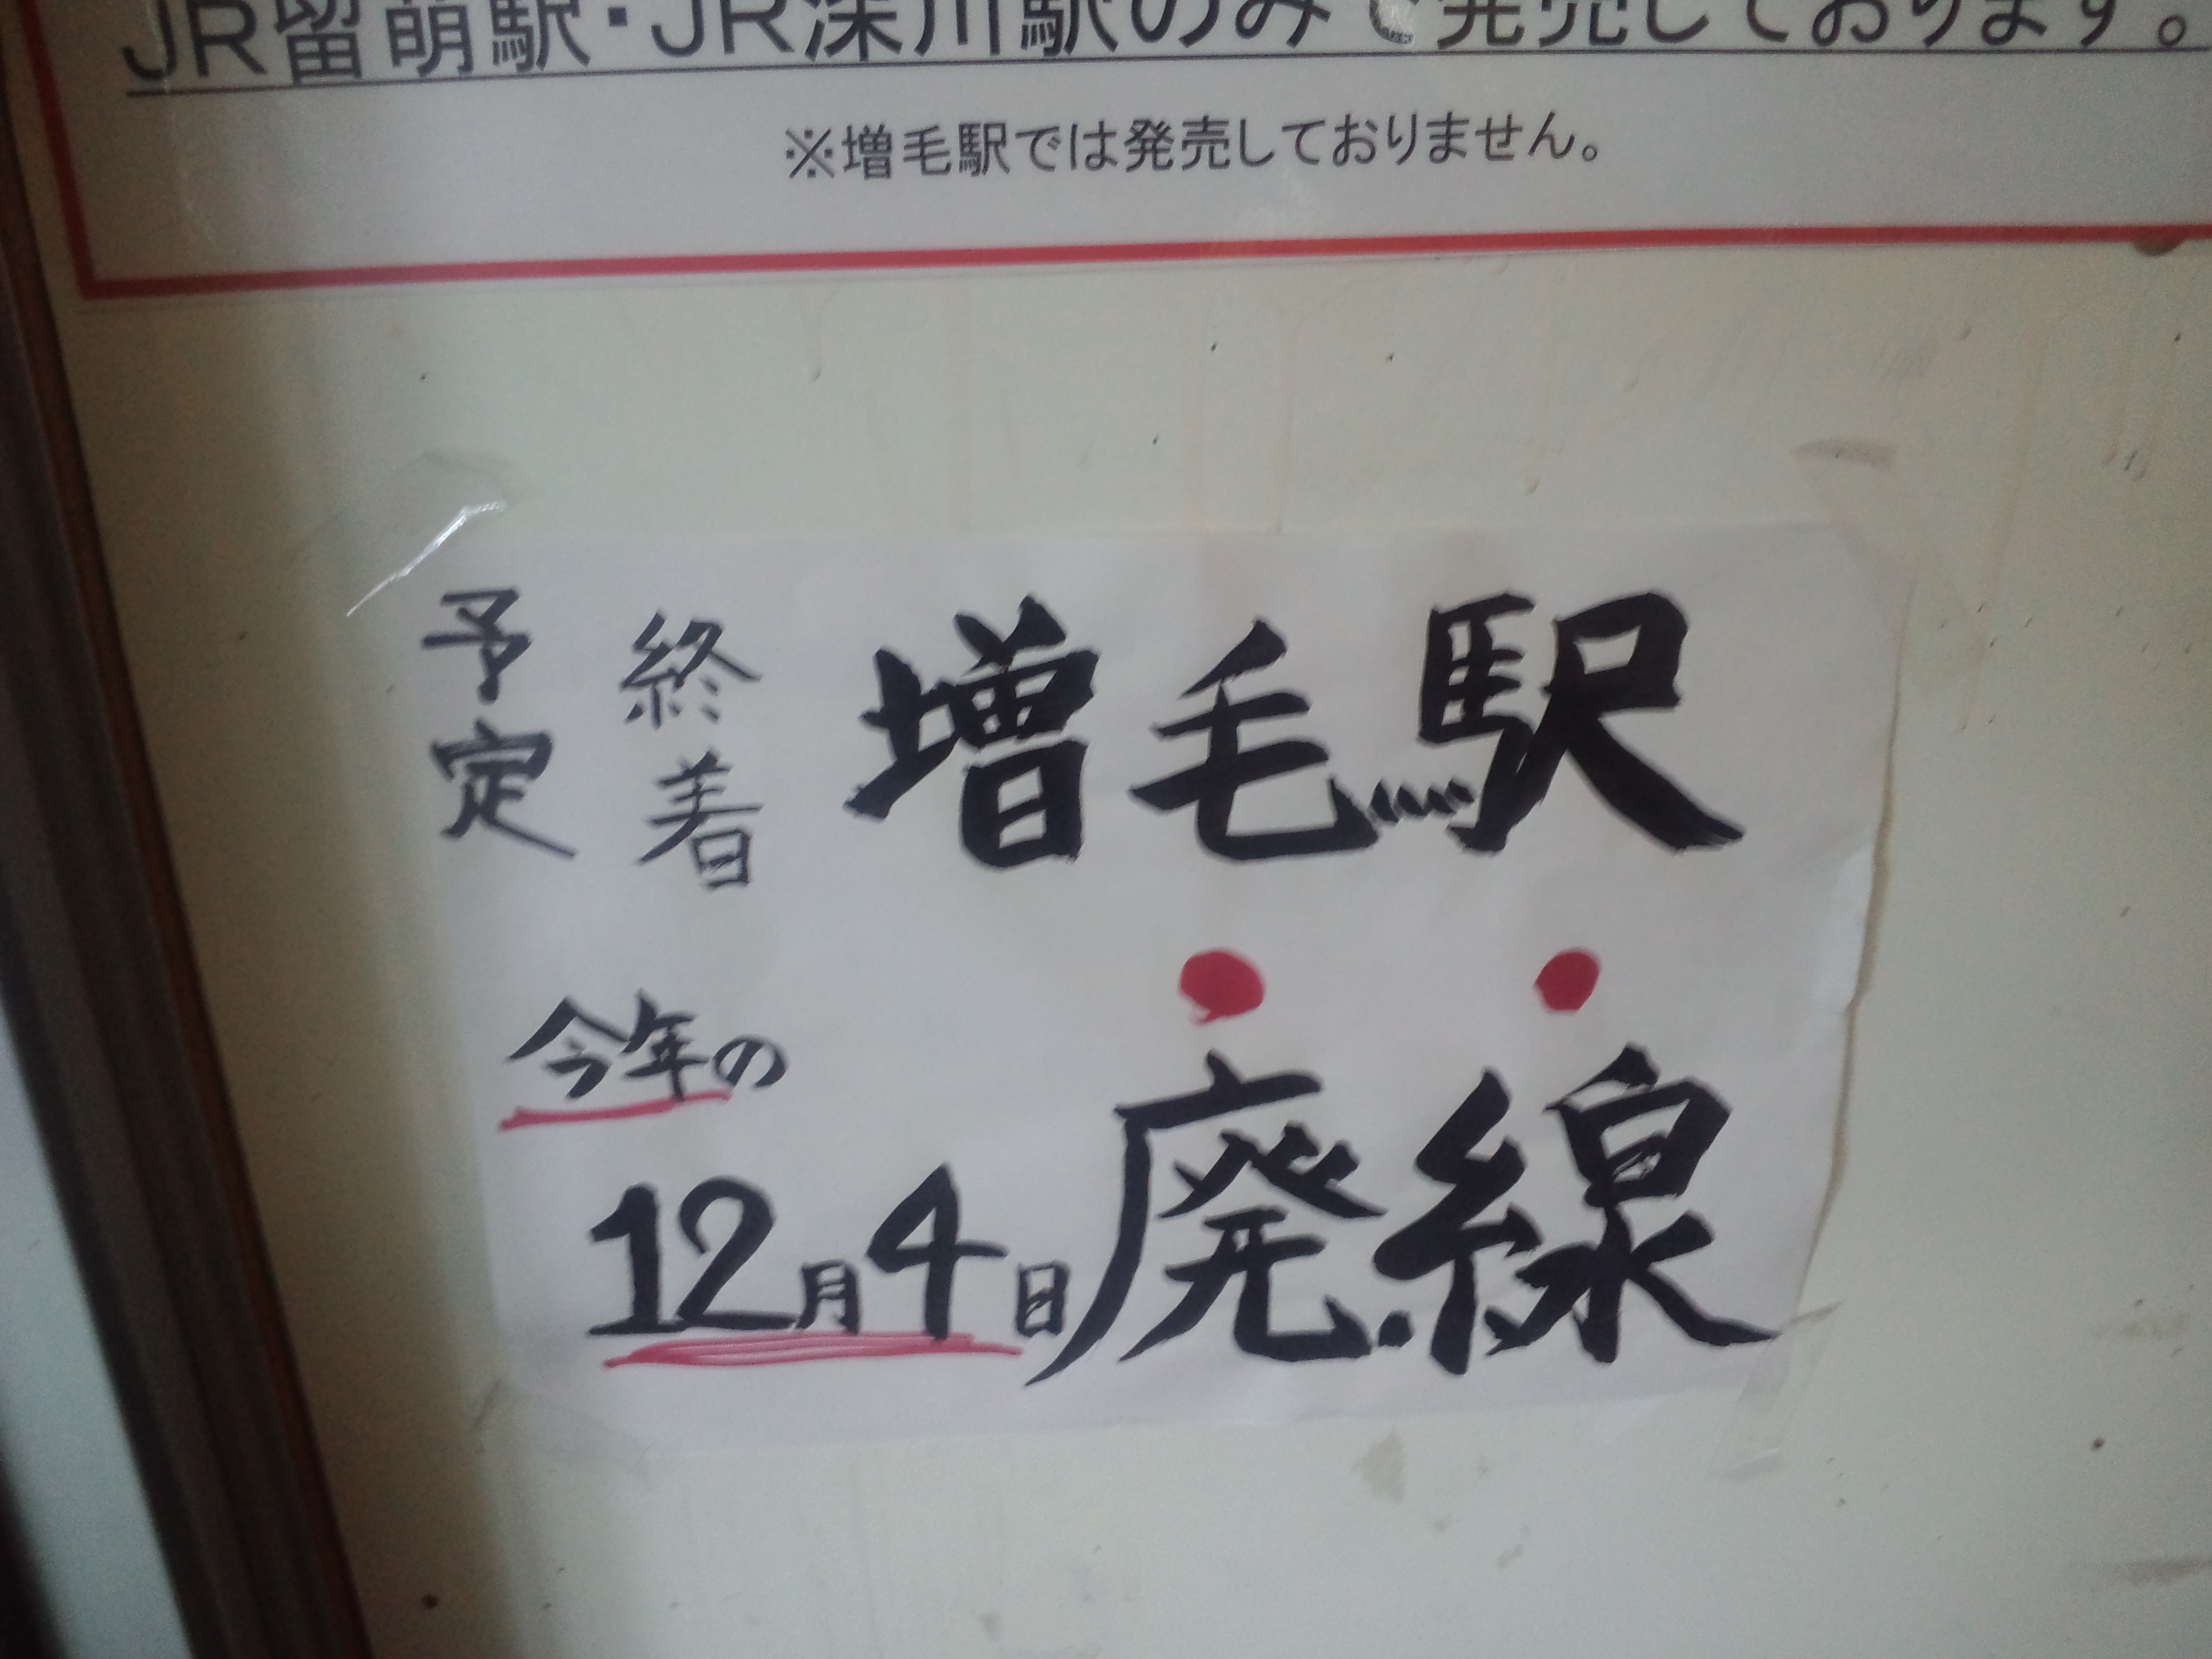 JR留萌駅・JR深川駅のみで発売しております。
※増毛駅では発売しておりません。
予定
終着
増毛駅
今年の
12月4日廃線